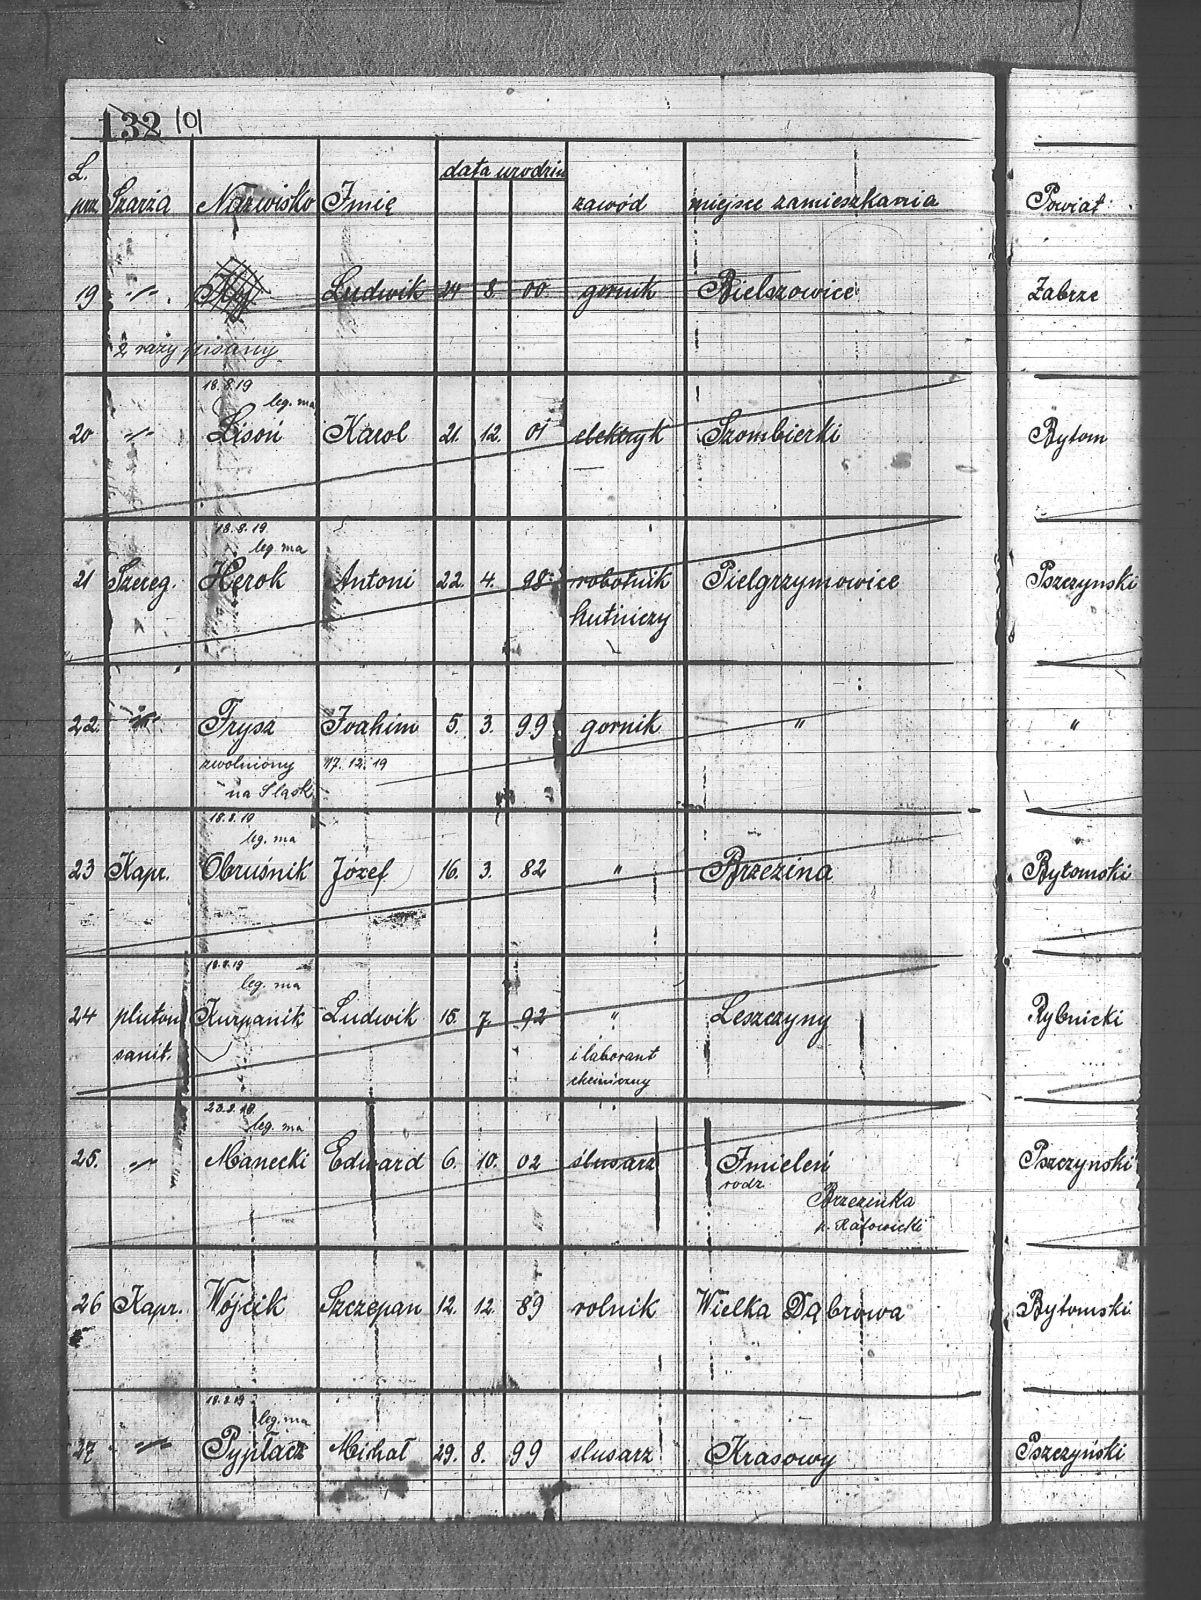 132 101
L. data urodzin
prz. Szarża Nazwisko Imię zawód miejsce zamieszkania Powiat
19 -"- Ludwik 24 8. 00. gornik Bielszowice Zabrze
2 razy pisany
18.8.19
leg. ma
20 -"- Lisoń Karol 21. 12. 01 elektryk Szombierki Bytom
18.8.19
leg. ma
21 Szereg. Herok Antoni 22. 4. 98. robotnik Pielgrzymowice Pszczynski
hutniczy
22. -"- Frysz Joahim 5. 3. 99 gornik " "
zwolniony 17.12.19
na Śląsk
18.8.19
leg. ma
23 Kapr. Obruśnik Józef 16. 3. 82 " Brzezina Bytomski
18.8.19
leg. ma
24 pluton Kurpanik Ludwik 15. 7. 92 " Leszczyny Rybnicki
sanit. i laborant
chemiczny
leg. ma
25. -"- Manecki Edward 6. 10. 02 ślusarz Imieleń Pszczynski
rodz.
Brzezinka
p. Katowicki
26 Kapr. Wójcik Szczepan 12. 12. 89 rolnik Wielka Dąbrowa Bytomski
18.8.19
leg. ma
27 -"- Pypłacz Michał 29. 8. 99 slusarz Krasowy Pszczyński